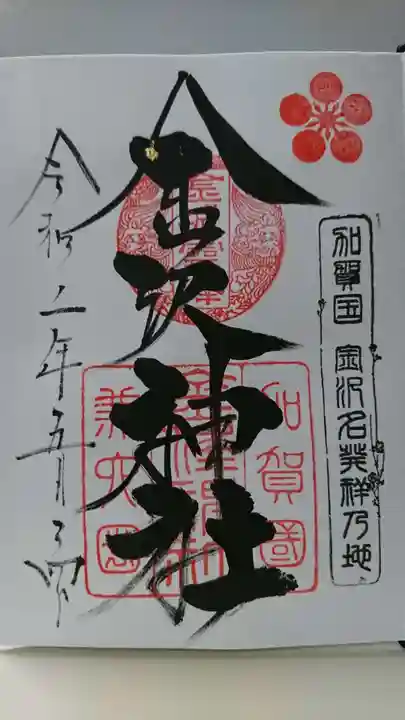 加賀国 金沢名発祥乃地
金沢神社
加賀國
金澤神社
兼六園
令和二年五月三十一日